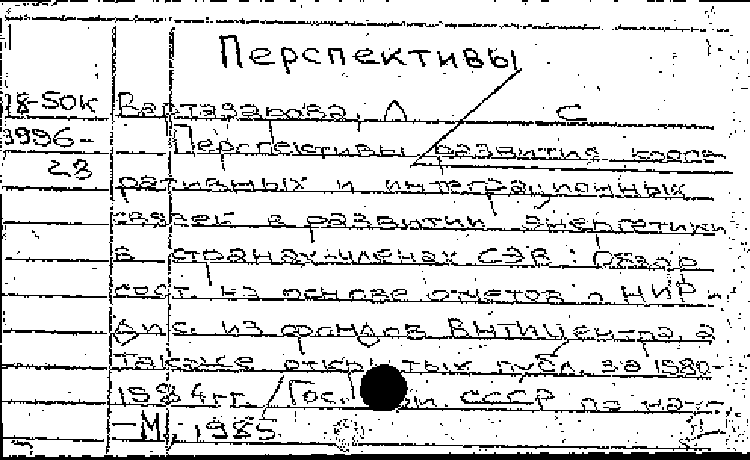 Перспективы
18-50К Вартазарова, Л С
3996- Перспективы развития коопе-
28
ративных и интеграционных
связей в развитии энергетики
в странах-членах СЭВ : Обзор
сост. на основе отчетов о НИР
дис. из фондов ВНТИЦентра а
также открытых публ. за 1980-
1984 гг. / Гос. СССР по
-М., 1985